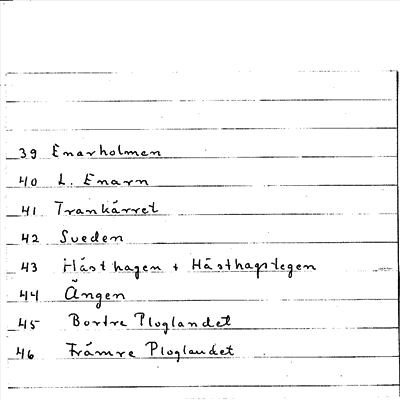 39 Enarholmen
40 L. Enarn
41 Trankärret
42 Sveden
43 Hästhagen + Hästhagstegen
44 Ängen
45 Bortre Ploglandet
46 Främre Ploglandet